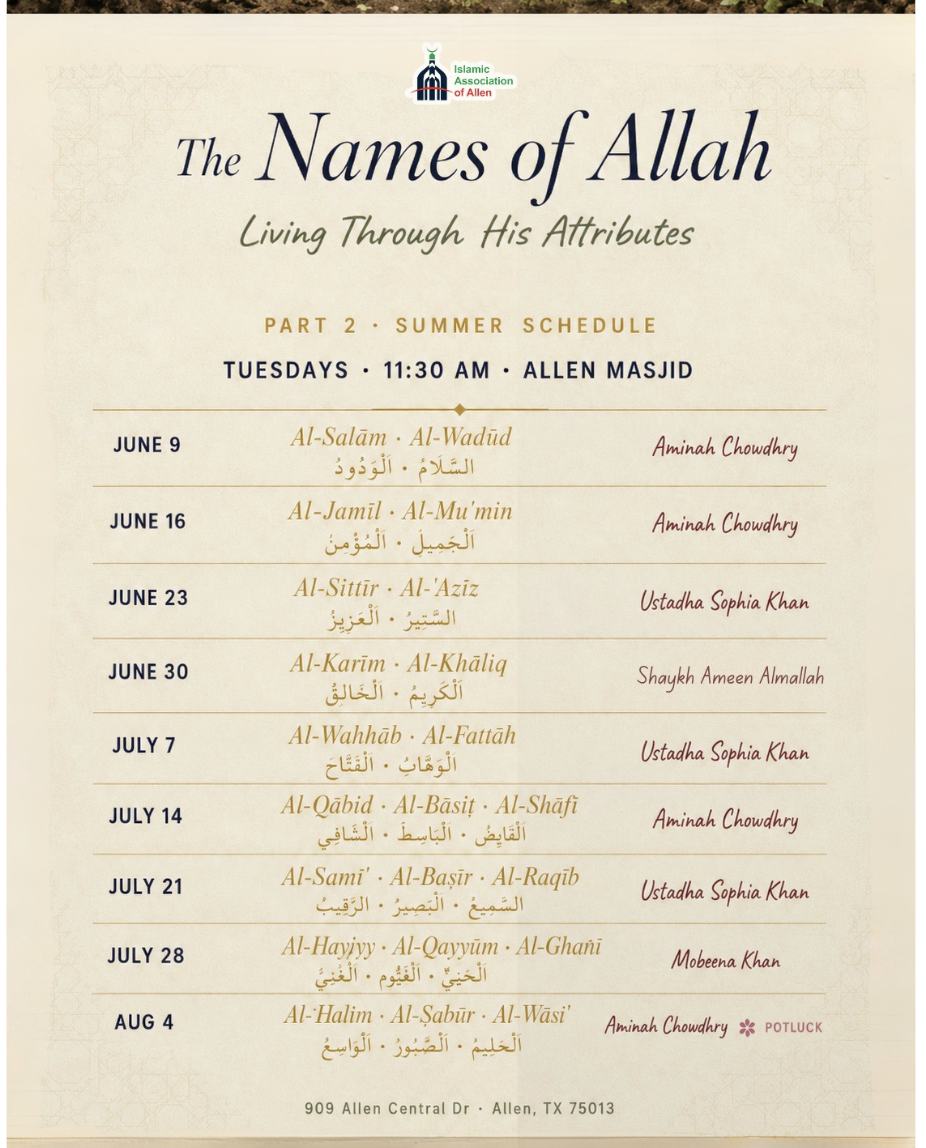 Islamic
Association
of Allen
The Names of Allah
Living Through His Attributes
PART 2 · SUMMER SCHEDULE
TUESDAYS · 11:30 AM · ALLEN MASJID
JUNE 9
Al-Salām · Al-Wadūd
السَّلَامُ · اَلْوَدُودُ
Aminah Chowdhry
JUNE 16
Al-Jamīl · Al-Mu'min
اَلْجَمِيلُ · اَلْمُؤْمِنُ
Aminah Chowdhry
JUNE 23
Al-Sittīr · Al-'Azīz
السَّتِيرُ · اَلْعَزِيزُ
Ustadha Sophia Khan
JUNE 30
Al-Karīm · Al-Khāliq
اَلْكَرِيمُ · اَلْخَالِقُ
Shaykh Ameen Almallah
JULY 7
Al-Wahhāb · Al-Fattāh
الْوَهَّابُ · الْفَتَّاحَ
Ustadha Sophia Khan
JULY 14
Al-Qābid · Al-Bāsiṭ · Al-Shāfī
اَلْقَابِضُ · الْبَاسِطُ · الْشَّافِي
Aminah Chowdhry
JULY 21
Al-Samī' · Al-Baṣīr · Al-Raqīb
السَّمِيعُ · الْبَصِيرُ · الرَّقِيبُ
Ustadha Sophia Khan
JULY 28
Al-Hayjyy · Al-Qayyūm · Al-Ghañī
Mobeena Khan
AUG 4
Al-Halim · Al-Ṣabūr · Al-Wāsi'
اَلْحَلِيمُ · الْصَّبُورُ · اَلْوَاسِعُ
Aminah Chowdhry POTLUCK
909 Allen Central Dr · Allen, TX 75013